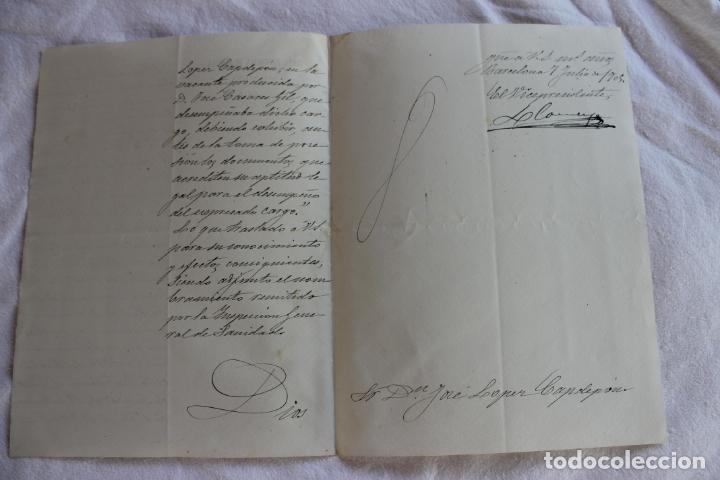 Loper Capdepón, en la
vacante producida por
D. José Casares Gil, que
desempeñaba dicho car-
go, debiendo exhibir, an-
tes de la toma de pose-
sión los documentos que
acrediten su aptitud le-
gal para el desempeño
del expresado cargo."
Lo que traslado a V.S.
para su conocimiento
y efectos consiguientes,
siendo adjunto el nom-
bramiento remitido
por la Inspección Gene-
ral de Sanidad.
Dios
gue a V.S. ms. años
Barcelona 7 Julio de
El Vicepresidente,
Sr. Dn. José Loper Capdepón
todocoleccion.net